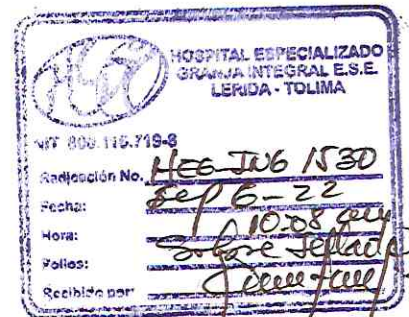 HOSPITAL ESPECIALIZADO
GRANJA INTEGRAL E.S.E.
LERIDA - TOLIMA
NIT 800.116.719-8
Radicación No. HEG-ING 1530
Fecha: Sep 6-22
Hora: 10:08 am
Folios: Sobre Sellado
Recibido por: